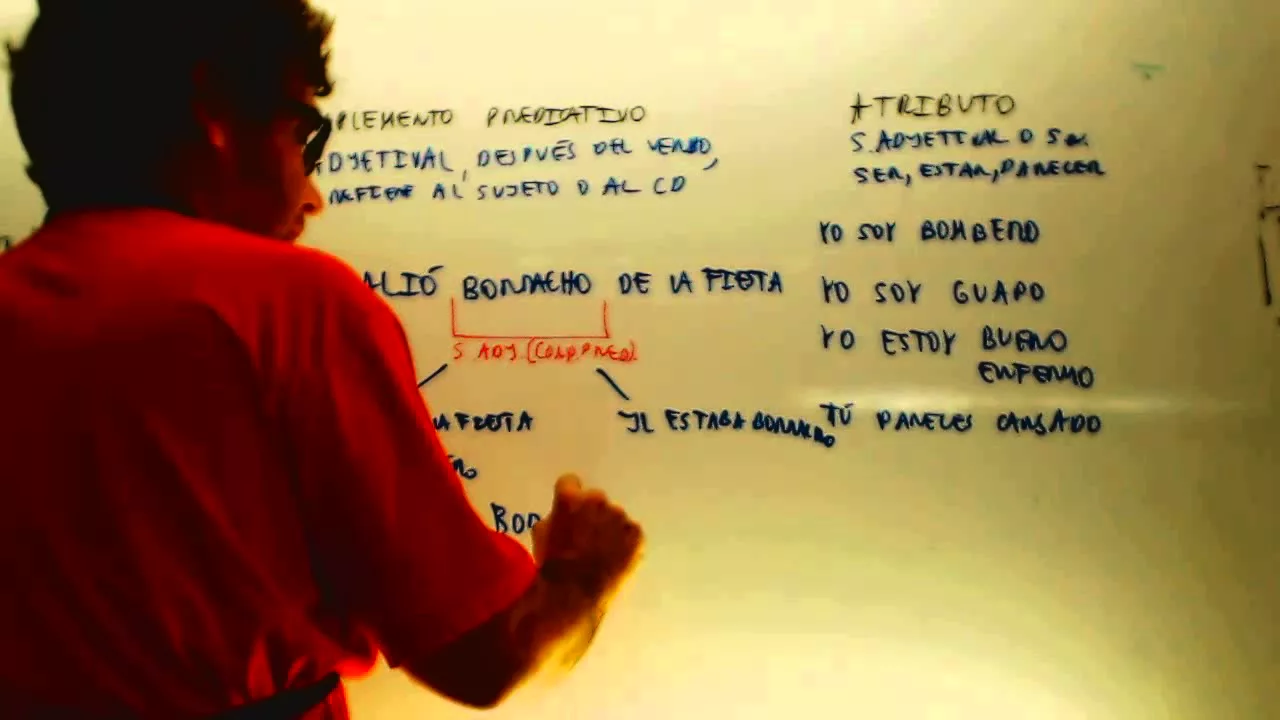 PLEMENTO PREDICATIVO
DJETIVAL, DESPUÉS DEL VERBO,
REFIERE AL SUJETO O AL CD
ALIÓ BORRACHO DE LA FIESTA
S. ADJ. (COMP. PRED)
LA FIESTA
ÉL ESTABA BORRACHO
BOR
ATRIBUTO
S. ADJETIVAL O S.
SER, ESTAR, PARECER
YO SOY BOMBERO
YO SOY GUAPO
YO ESTOY BUENO
ENFERMO
TÚ PARECES CANSADO